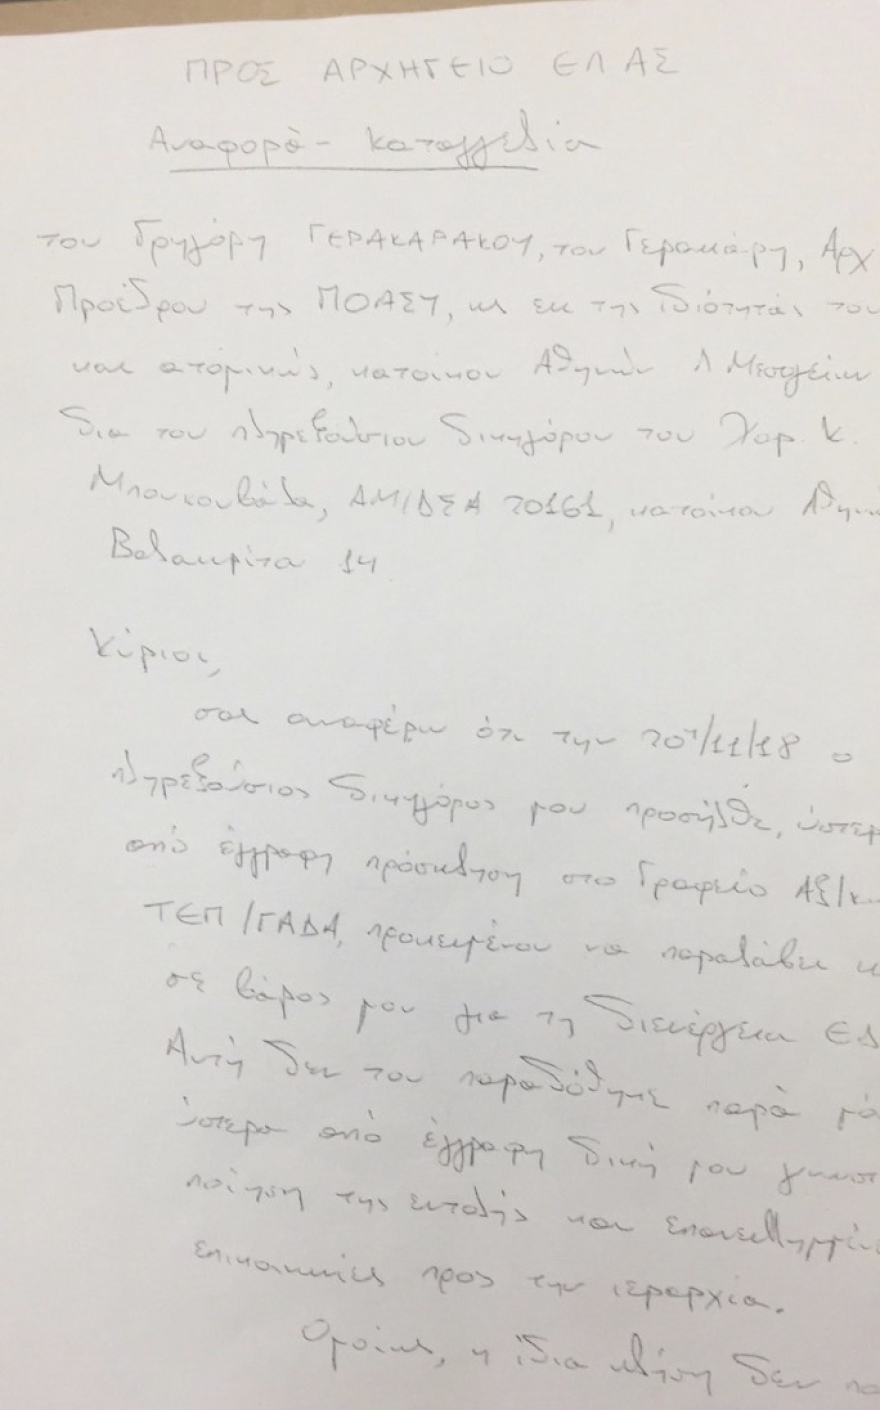 ΠΡΟΣ ΑΡΧΗΓΕΙΟ ΕΛ ΑΣ
Αναφορά - Καταγγελία
του Γρηγόρη ΓΕΡΑΚΑΡΑΚΟΥ, του Γερακάρη, Αρχ
Προέδρου της ΠΟΑΣΥ, ως εκ της ιδιότητάς του
και ατομικώς, κατοίκου Αθηνών Λ Μεσογείων
δια του πληρεξούσιου δικηγόρου του Χαρ. Κ.
Μπουκουβάλα, ΑΜ/ΔΣΑ 20161, κατοίκου Αθην
Βαλαωρίτου 14
Κύριοι,
σας αναφέρω ότι την 20η/11/18 ο
πληρεξούσιος δικηγόρος μου προσήλθε, ύστερ
από έγγραφη πρόσκληση στο Γραφείο Αξ/κ
ΤΕΠ/ΓΑΔΑ, προκειμένου να παραλάβει κ
σε βάρος μου για τη διενέργεια ΕΔ
Αυτή δεν του παραδόθηκε παρά μό
ύστερα από έγγραφη δική μου γνωστ
ποίηση της εντολής και επανειλημμένε
επικοινωνίες προς την ιεραρχία.
Ομοίως, η ίδια κλήση δεν πα